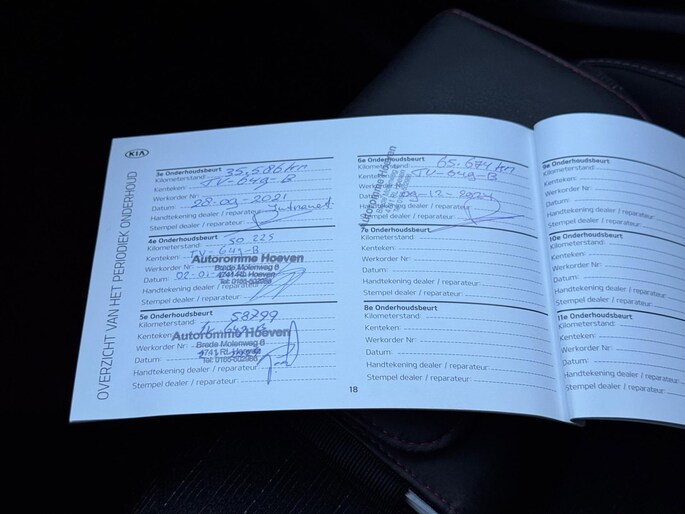 KIA
OVERZICHT VAN HET PERIODIEK ONDERHOUD
3e Onderhoudsbeurt
Kilometerstand: 35.586 km
Kenteken: TV-649-B
Werkorder Nr:
Datum: 28-09-2021
Handtekening dealer / reparateur:
Stempel dealer / reparateur:
4e Onderhoudsbeurt
Kilometerstand: 50 225
Kenteken: TV-649-B
Autoromme Hoeven
Werkorder Nr: Brede Molenweg 6
4741 RL Hoeven
Datum: 02-01-
Tel: 0165-502988
Handtekening dealer / reparateur:
Stempel dealer / reparateur:
5e Onderhoudsbeurt
Kilometerstand: 58799
Kenteken: TV-649-B
Autoromme Hoeven
Werkorder Nr: Brede Molenweg 6
4741 RL Hoeven
Datum:
Tel: 0165-502988
Handtekening dealer / reparateur:
Stempel dealer / reparateur:
6e Onderhoudsbeurt
Kilometerstand: 65.674 km
Kenteken: TV-649-B
Werkorder Nr:
Datum: 09-12-2024
Handtekening dealer / reparateur:
Stempel dealer / reparateur:
Autoromme Hoeven
7e Onderhoudsbeurt
Kilometerstand:
Kenteken:
Werkorder Nr:
Datum:
Handtekening dealer / reparateur:
Stempel dealer / reparateur:
8e Onderhoudsbeurt
Kilometerstand:
Kenteken:
Werkorder Nr:
Datum:
Handtekening dealer / reparateur:
Stempel dealer / reparateur:
18
9e Onderhoudsbeurt
Kilometerstand:
Kenteken:
Werkorder Nr:
Datum:
Handtekening dealer / reparateur:
Stempel dealer / reparateur:
10e Onderhoudsbeurt
Kilometerstand:
Kenteken:
Werkorder Nr:
Datum:
Handtekening dealer / reparateur:
Stempel dealer / reparateur:
11e Onderhoudsbeurt
Kilometerstand:
Kenteken:
Werkorder Nr:
Datum:
Handtekening dealer / reparateur:
Stempel dealer / reparateur: